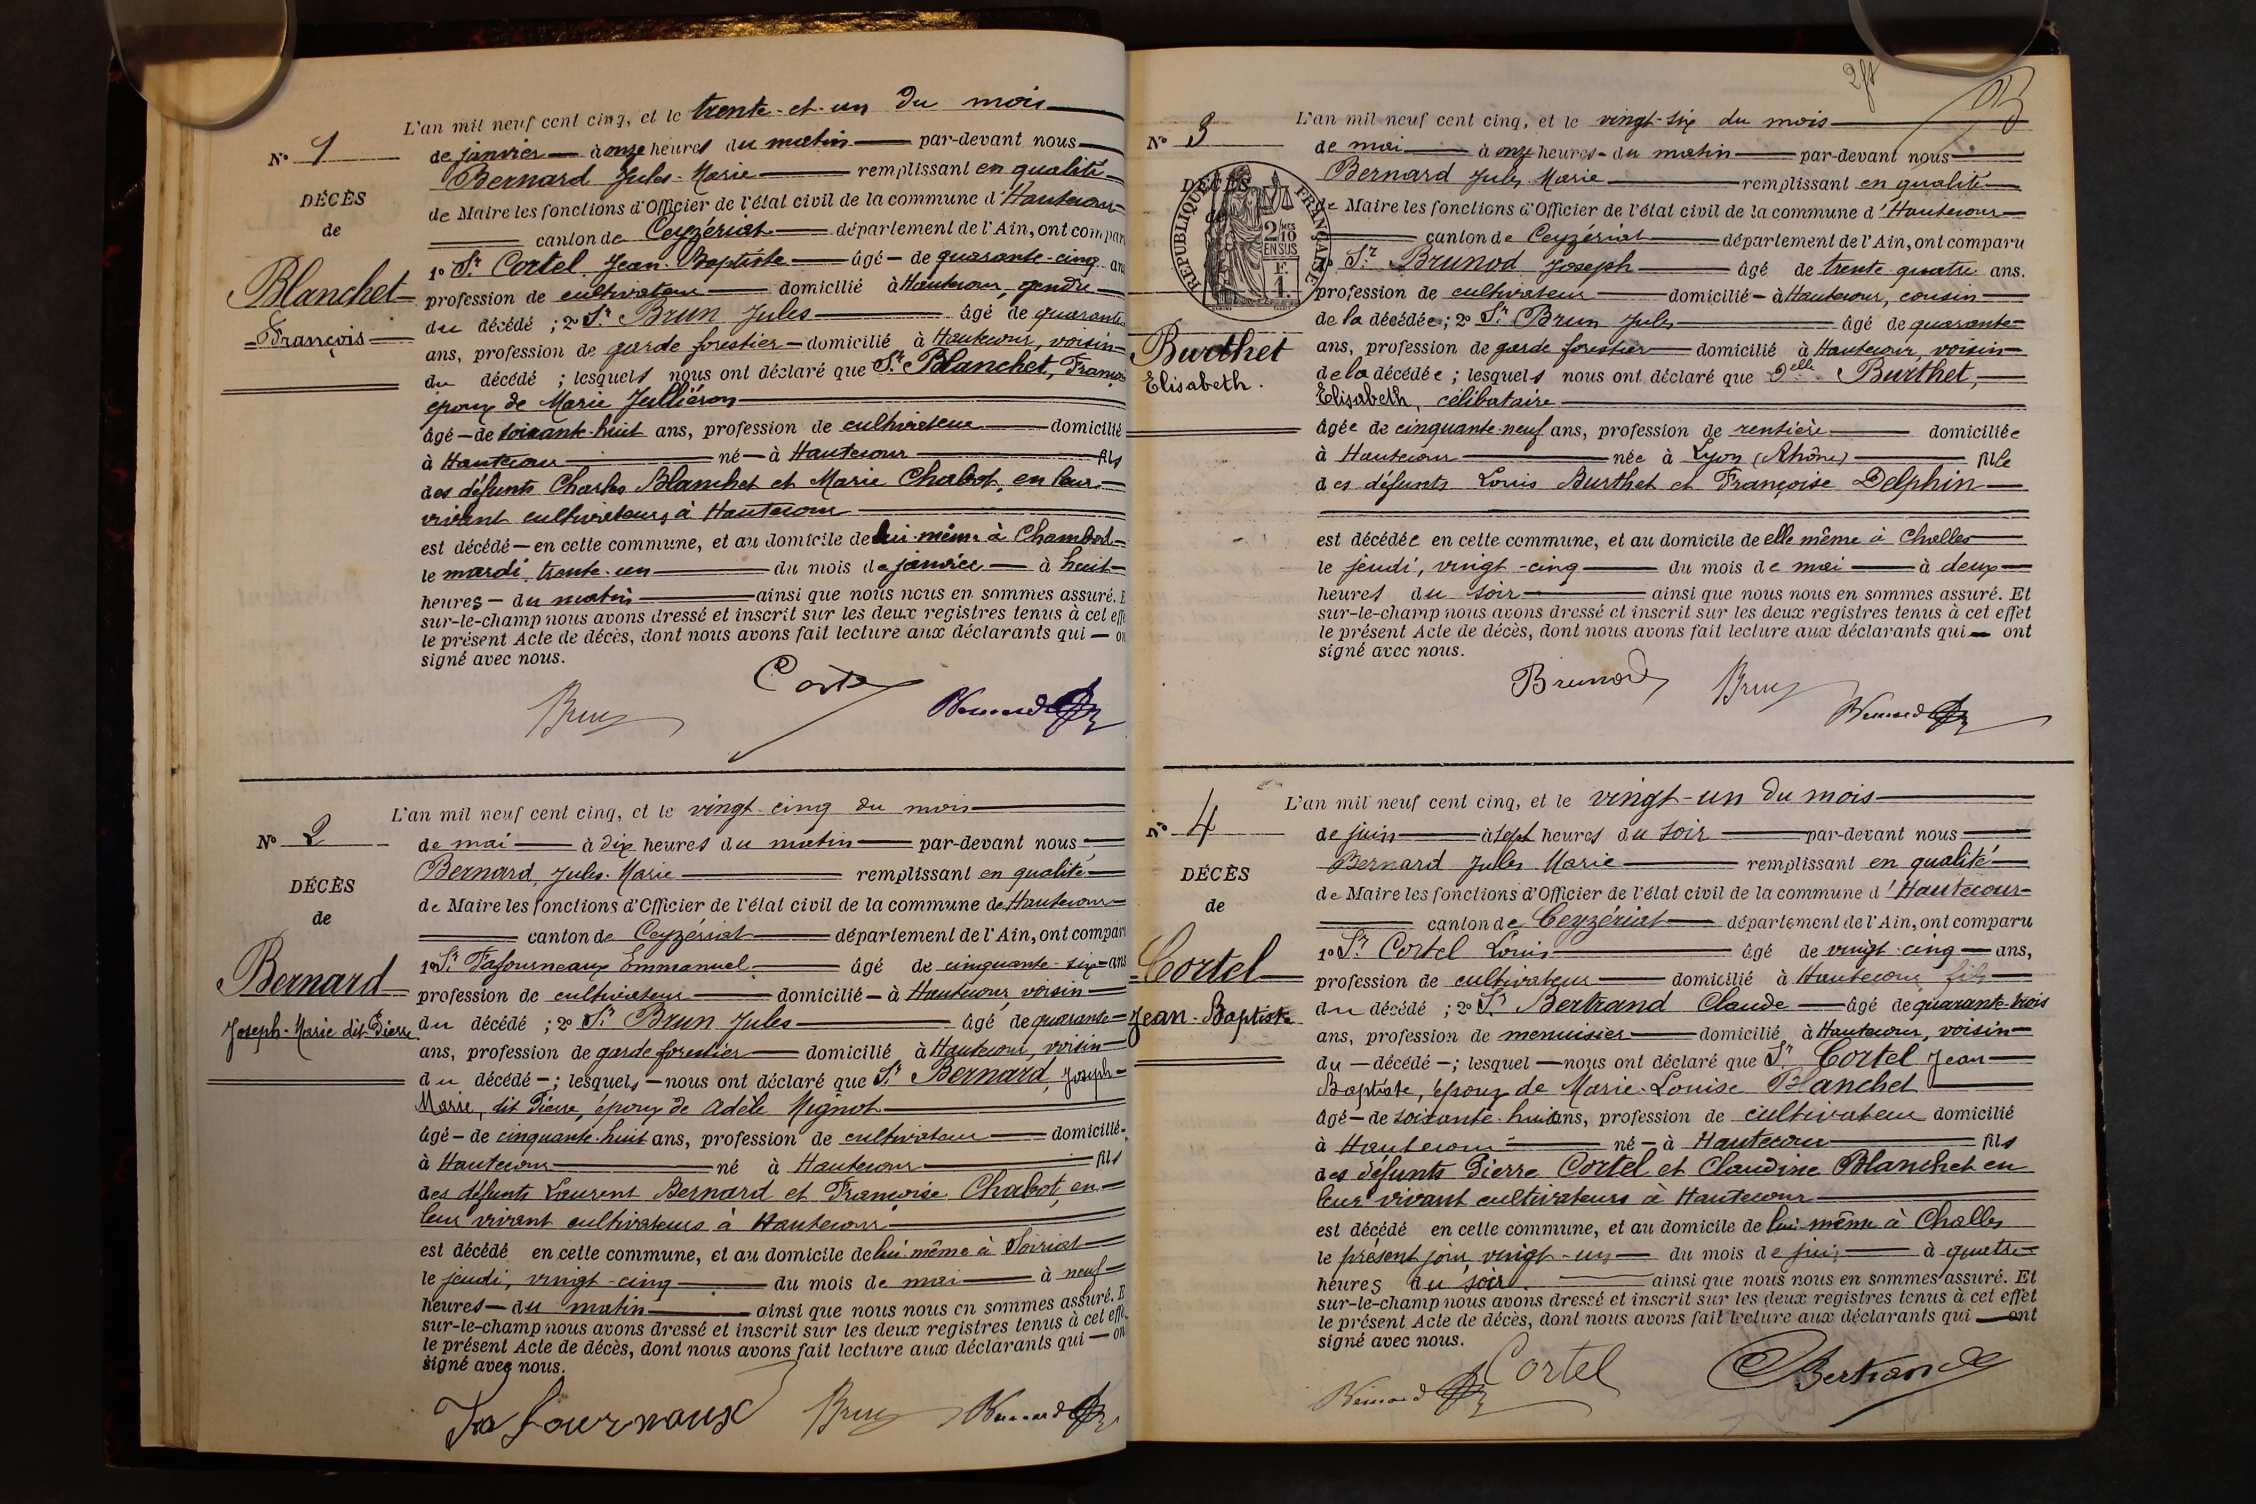 L'an mil neuf cent cinq, et le trente-et-un du mois
N° 1
de janvier à onze heures du matin par-devant nous
Bernard Jules-Marie remplissant en qualité
DÉCÈS
de Maire les fonctions d'Officier de l'état civil de la commune d'Hautecour
de
canton de Ceyzériat département de l'Ain, ont compar
1° Sr Cortel Jean-Baptiste âgé de quarante-cinq an
Blanchet
profession de cultivateur domicilié à Hautecour, gendre
François
du décédé ; 2° Sr Brun Jules âgé de quarante
ans, profession de garde forestier domicilié à Hautecour, voisin
du décédé ; lesquels nous ont déclaré que Sr Blanchet, Franço
époux de Marie Julliéron
âgé de soixante-huit ans, profession de cultivateur domicilié
à Hautecour né à Hautecour fils
des défunts Charles Blanchet et Marie Chabot, en leur
vivant cultivateurs à Hautecour
est décédé en cette commune, et au domicile de lui-même à Chambod
le mardi, trente-un du mois de janvier à huit
heures du matin ainsi que nous nous en sommes assuré. E
sur-le-champ nous avons dressé et inscrit sur les deux registres tenus à cet effe
le présent Acte de décès, dont nous avons fait lecture aux déclarants qui on
signé avec nous.
Cortel
Brun Bernard
L'an mil neuf cent cinq, et le vingt-cinq du mois
N° 2
de mai à dix heures du matin par-devant nous
Bernard, Jules-Marie remplissant en qualité
DÉCÈS
de Maire les fonctions d'Officier de l'état civil de la commune de Hautecour
de
canton de Ceyzériat département de l'Ain, ont compar
1° Sr Tafourneaux Emmanuel âgé de cinquante-six ans
Bernard
profession de cultivateur domicilié à Hautecour, voisin
Joseph-Marie dit Pierre
du décédé ; 2° Sr Brun Jules âgé de quarante
ans, profession de garde forestier domicilié à Hautecour, voisin
du décédé ; lesquels nous ont déclaré que Sr Bernard, Joseph-
Marie, dit Pierre, époux de Adèle Mignot
âgé de cinquante-huit ans, profession de cultivateur domicilié
à Hautecour né à Hautecour fils
des défunts Laurent Bernard et Françoise Chabot, en
leur vivant cultivateurs à Hautecour
est décédé en cette commune, et au domicile de lui-même à Soiriat
le jeudi, vingt-cinq du mois de mai à neuf
heures du matin ainsi que nous nous en sommes assuré. E
sur-le-champ nous avons dressé et inscrit sur les deux registres tenus à cet effe
le présent Acte de décès, dont nous avons fait lecture aux déclarants qui on
signé avec nous.
Tafournaux Brun Bernard
L'an mil neuf cent cinq, et le vingt-six du mois
N° 3
de mai à onze heures du matin par-devant nous
Bernard Jules Marie remplissant en qualité
DÉCÈS
de
RÉPUBLIQUE FRANÇAISE
2/10 EN SUS
F. 1.
de Maire les fonctions d'Officier de l'état civil de la commune d'Hautecour
canton de Ceyzériat département de l'Ain, ont comparu
Sr Brunod Joseph âgé de trente-quatre ans.
profession de cultivateur domicilié à Hautecour, cousin
de la décédée ; 2° Sr Brun Jules âgé de quarante
Burthet
ans, profession de garde forestier domicilié à Hautecour, voisin
Elisabeth.
de la décédée ; lesquels nous ont déclaré que Delle Burthet,
Elisabeth, célibataire
âgée de cinquante-neuf ans, profession de rentière domiciliée
à Hautecour née à Lyon (Rhône) fille
des défunts Louis Burthet et Françoise Delphin
est décédée en cette commune, et au domicile de elle même à Challes
le jeudi, vingt-cinq du mois de mai à deux
heures du soir ainsi que nous nous en sommes assuré. Et
sur-le-champ nous avons dressé et inscrit sur les deux registres tenus à cet effet
le présent Acte de décès, dont nous avons fait lecture aux déclarants qui ont
signé avec nous.
Brunod Brun
Bernard
L'an mil neuf cent cinq, et le vingt-un du mois
N° 4
de juin à sept heures du soir par-devant nous
Bernard Jules Marie remplissant en qualité
DÉCÈS
de Maire les fonctions d'Officier de l'état civil de la commune d'Hautecour
de
canton de Ceyzériat département de l'Ain, ont comparu
1° Sr Cortel Louis âgé de vingt-cinq ans,
Cortel
profession de cultivateur domicilié à Hautecour, fils
Jean-Baptiste
du décédé ; 2° Sr Bertrand Claude âgé de quarante-trois
ans, profession de menuisier domicilié à Hautecour, voisin
du décédé ; lesquel nous ont déclaré que Sr Cortel Jean
Baptiste, époux de Marie-Louise Blanchet
âgé de soixante-huit ans, profession de cultivateur domicilié
à Hautecour né à Hautecour fils
des défunts Pierre Cortel et Claudine Blanchet en
leur vivant cultivateurs à Hautecour
est décédé en cette commune, et au domicile de lui-même à Challes
le présent jour, vingt-un du mois de juin à quatre
heures du soir ainsi que nous nous en sommes assuré. Et
sur-le-champ nous avons dressé et inscrit sur les deux registres tenus à cet effet
le présent Acte de décès, dont nous avons fait lecture aux déclarants qui ont
signé avec nous.
Bernard Cortel Bertrand